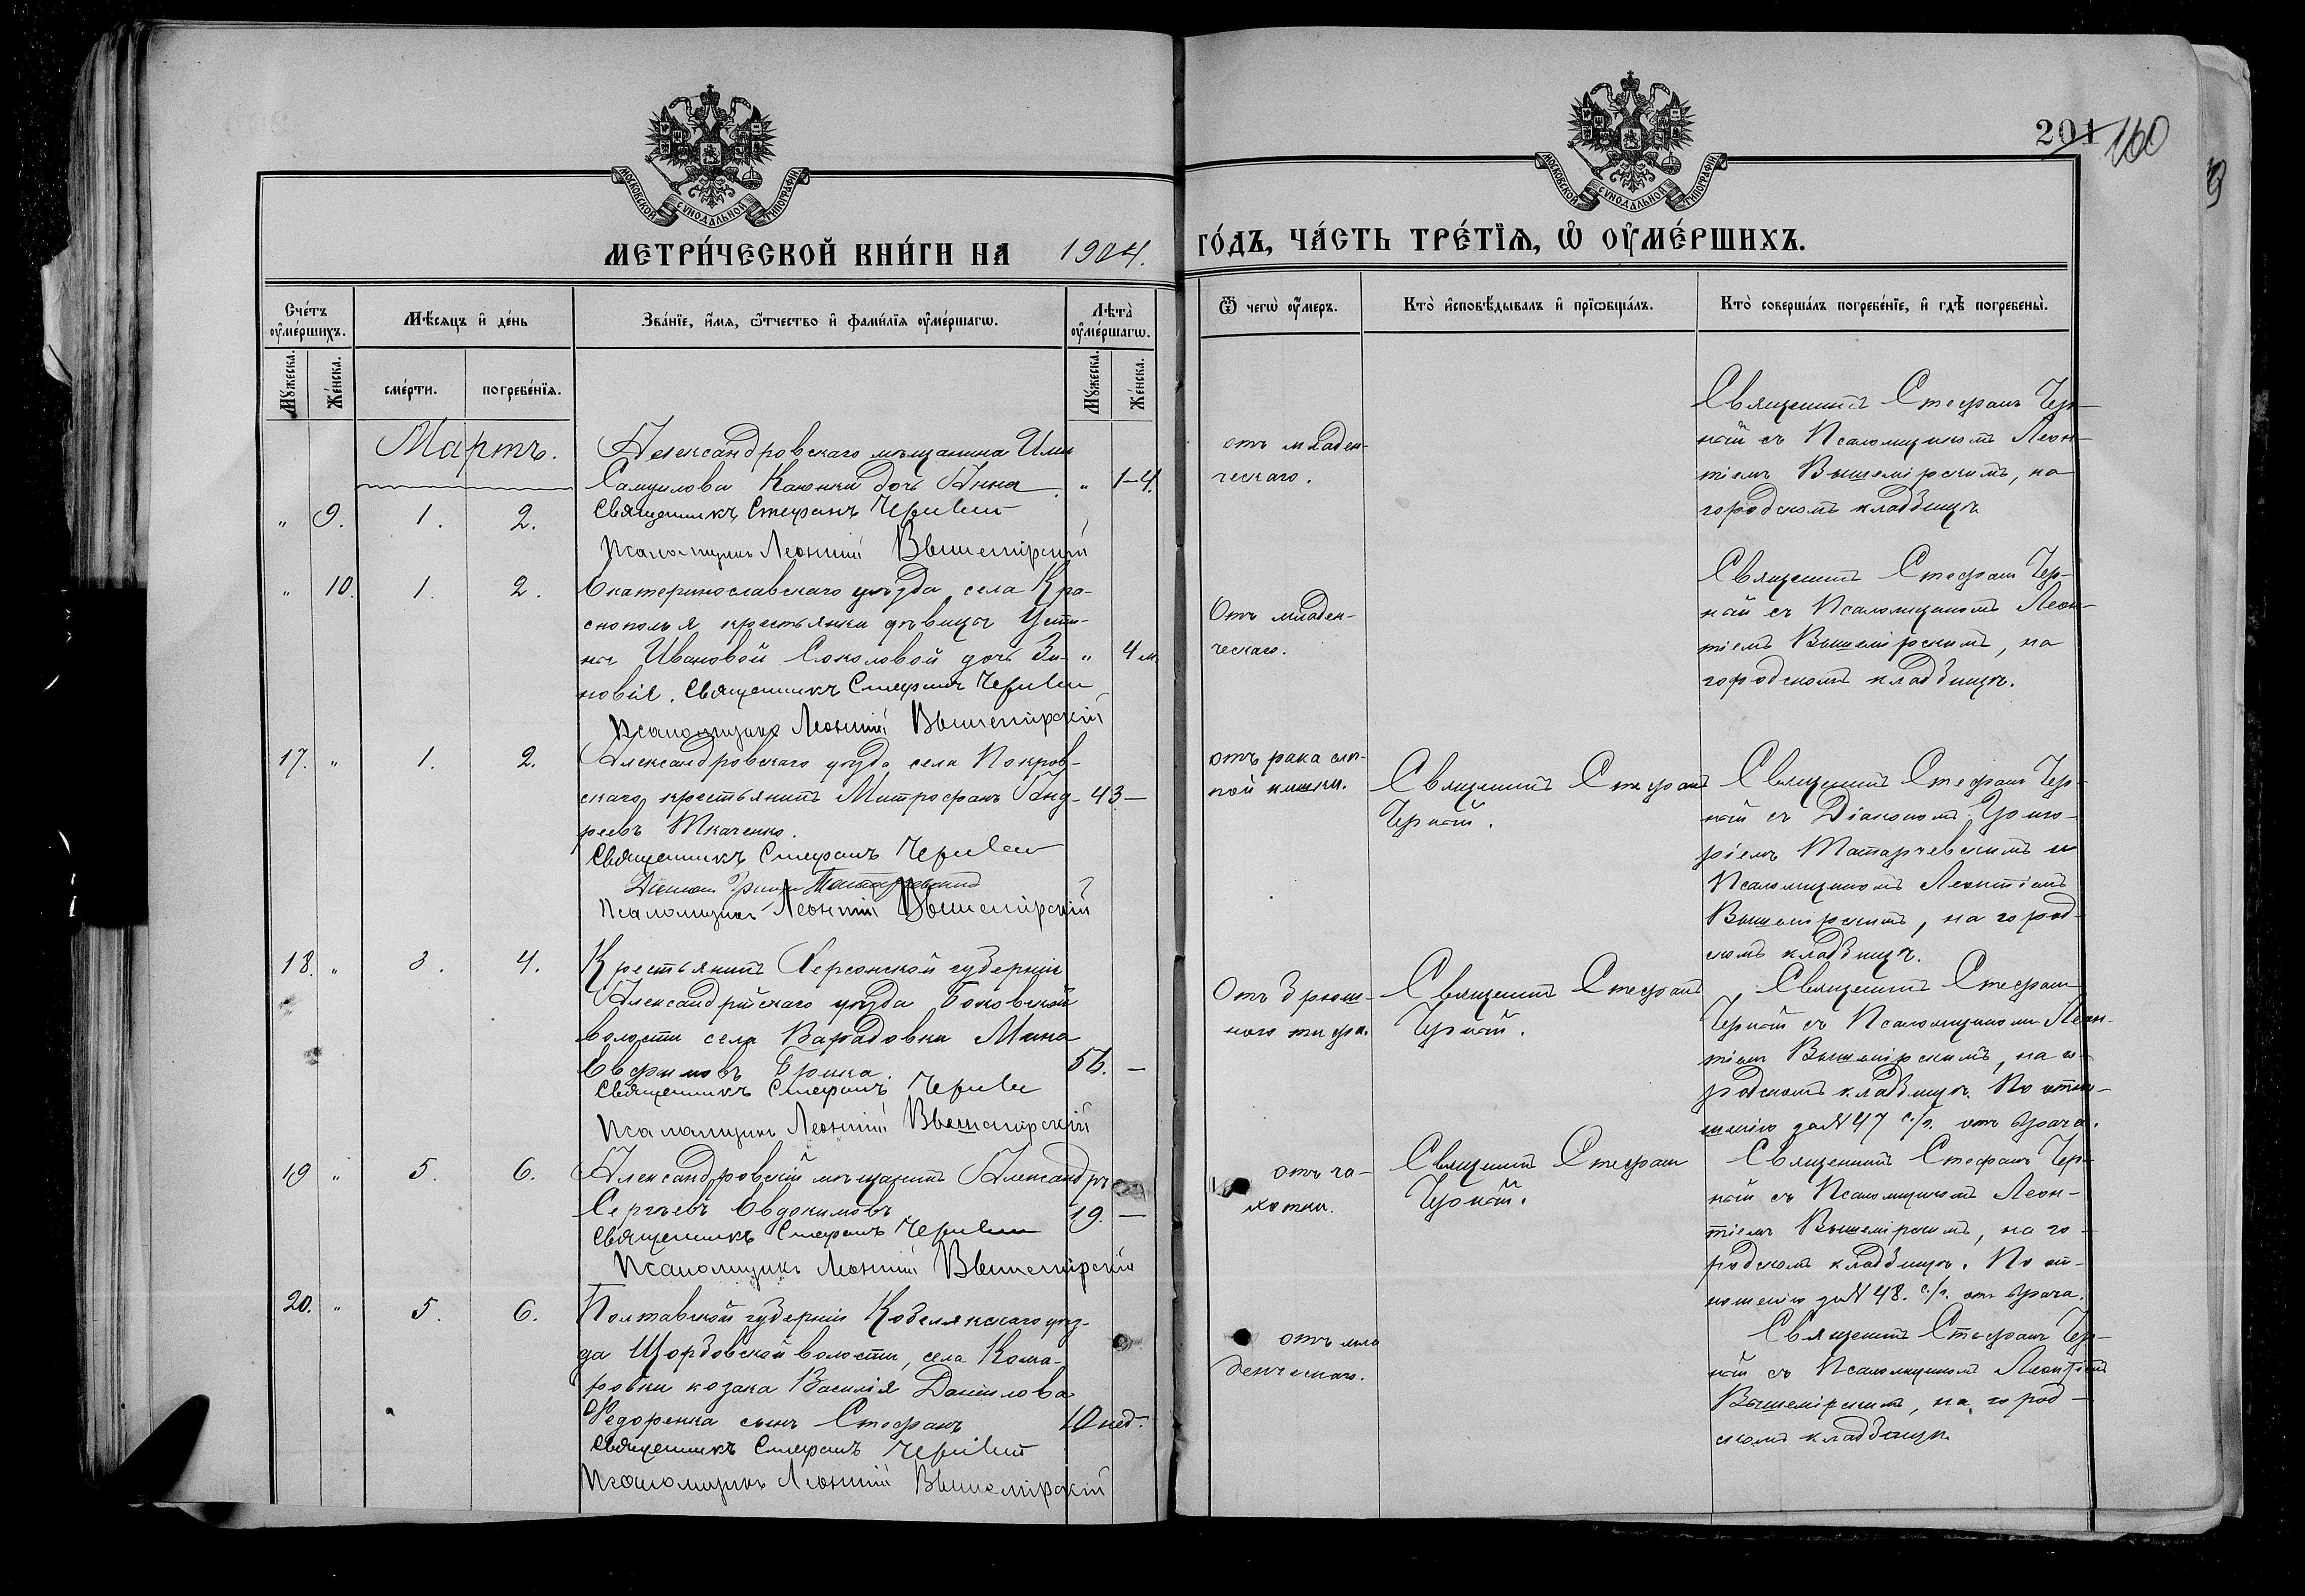 201 160
МОСКОВСКОЙ СѴНОДАЛЬНОЙ ТИПОГРАФІИ
МОСКОВСКОЙ СѴНОДАЛЬНОЙ ТИПОГРАФІИ
МЕТРИ́ЧЕСКОЙ КНИ́ГИ НА 1904.
ГО́ДЪ, ЧА́СТЬ ТРЕ́ТІѦ, Ѽ ОУ҆МЕ́РШИХЪ.
Сче́тъ оу҆ме́ршихъ.
Мꙋ́жеска. Же́нска.
Мѣ́сяцъ и҆ де́нь
сме́рти. погребе́нїѧ.
Зва́нїе, и҆́мѧ, ѻ҆́тчество и҆ фами́лїѧ оу҆ме́ршагѡ.
Лѣ̑та̀ оу҆ме́ршагѡ.
Мꙋ́жеска. Же́нска.
Ѿ чегѡ̀ оу҆́меръ.
Кто̀ и҆сповѣ́дывалъ и҆ прїѡбща́лъ.
Кто̀ соверша́лъ погребе́нїе, и҆ гдѣ̀ погребены̀.
Мартъ.
" 9. 1. 2.
Александровскаго мѣщанина Ильи
Самуилова Каюнки дочь Анна. " 1–4.
Священникъ Стефанъ
Псаломщикъ Леонтій Вышемірскій
отъ младен-
ческаго.
Священникъ Стефанъ Чер-
ный съ Псаломщикомъ Леон-
тіемъ Вышемірскимъ, на
городскомъ кладбищѣ.
" 10. 1. 2.
Екатеринославскаго уѣзда села Кра-
снополья крестьянки дѣвицы Усти-
ньи Ивановой Соколовой дочь Зи- " 4 м.
новія. Священникъ Стефанъ
Псаломщикъ Леонтій Вышемірскій
Отъ младен-
ческаго.
Священникъ Стефанъ Чер-
ный съ Псаломщикомъ Леон-
тіемъ Вышемірскимъ, на
городскомъ кладбищѣ.
17. " 1. 2.
Александровскаго уѣзда села Покров-
скаго крестьянинъ Митрофанъ Анд- 43 —
реевъ Ткаченко.
Священникъ Стефанъ
Діаконъ
Псаломщикъ Леонтій Вышемірскій
отъ рака слѣ-
пой кишки.
Священникъ Стефанъ
Черный.
Священникъ Стефанъ Чер-
ный съ Діакономъ
Татарчевскимъ и
Псаломщикомъ Леонтіемъ
Вышемірскимъ, на город-
скомъ кладбищѣ.
18. " 3. 4.
Крестьянинъ Херсонской губерніи
Александрійскаго уѣзда Боковской
волости села Варадовки Мина
Евфимовъ 56. —
Священникъ Стефанъ
Псаломщикъ Леонтій Вышемірскій
Отъ брюш-
ного тифа.
Священникъ Стефанъ
Черный.
Священникъ Стефанъ
Черный съ Псаломщикомъ Леон-
тіемъ Вышемірскимъ, на го-
родскомъ кладбищѣ. По отно-
шенію за № 47 с/г. отъ врача.
19 " 5. 6.
Александровскій мѣщанинъ Александръ
Сергѣевъ Евдокимовъ 19. —
Священникъ Стефанъ
Псаломщикъ Леонтій Вышемірскій
отъ ча-
хотки.
Священникъ Стефанъ
Черный.
Священникъ Стефанъ Чер-
ный съ Псаломщикомъ Леон-
тіемъ Вышемірскимъ, на го-
родскомъ кладбищѣ. По от-
ношенію за № 48. с/г. отъ врача.
20. " 5. 6.
Полтавской губерніи Кобелякскаго уѣз-
да волости, села Кома-
ровки козака Василія Данилова
Федоренка сынъ Стефанъ 10 нед.
Священникъ Стефанъ
Псаломщикъ Леонтій Вышемірскій
отъ мла
денческаго.
Священникъ Стефанъ Чер-
ный съ Псаломщикомъ Леонтіемъ
Вышемірскимъ, на город-
скомъ кладбищѣ.